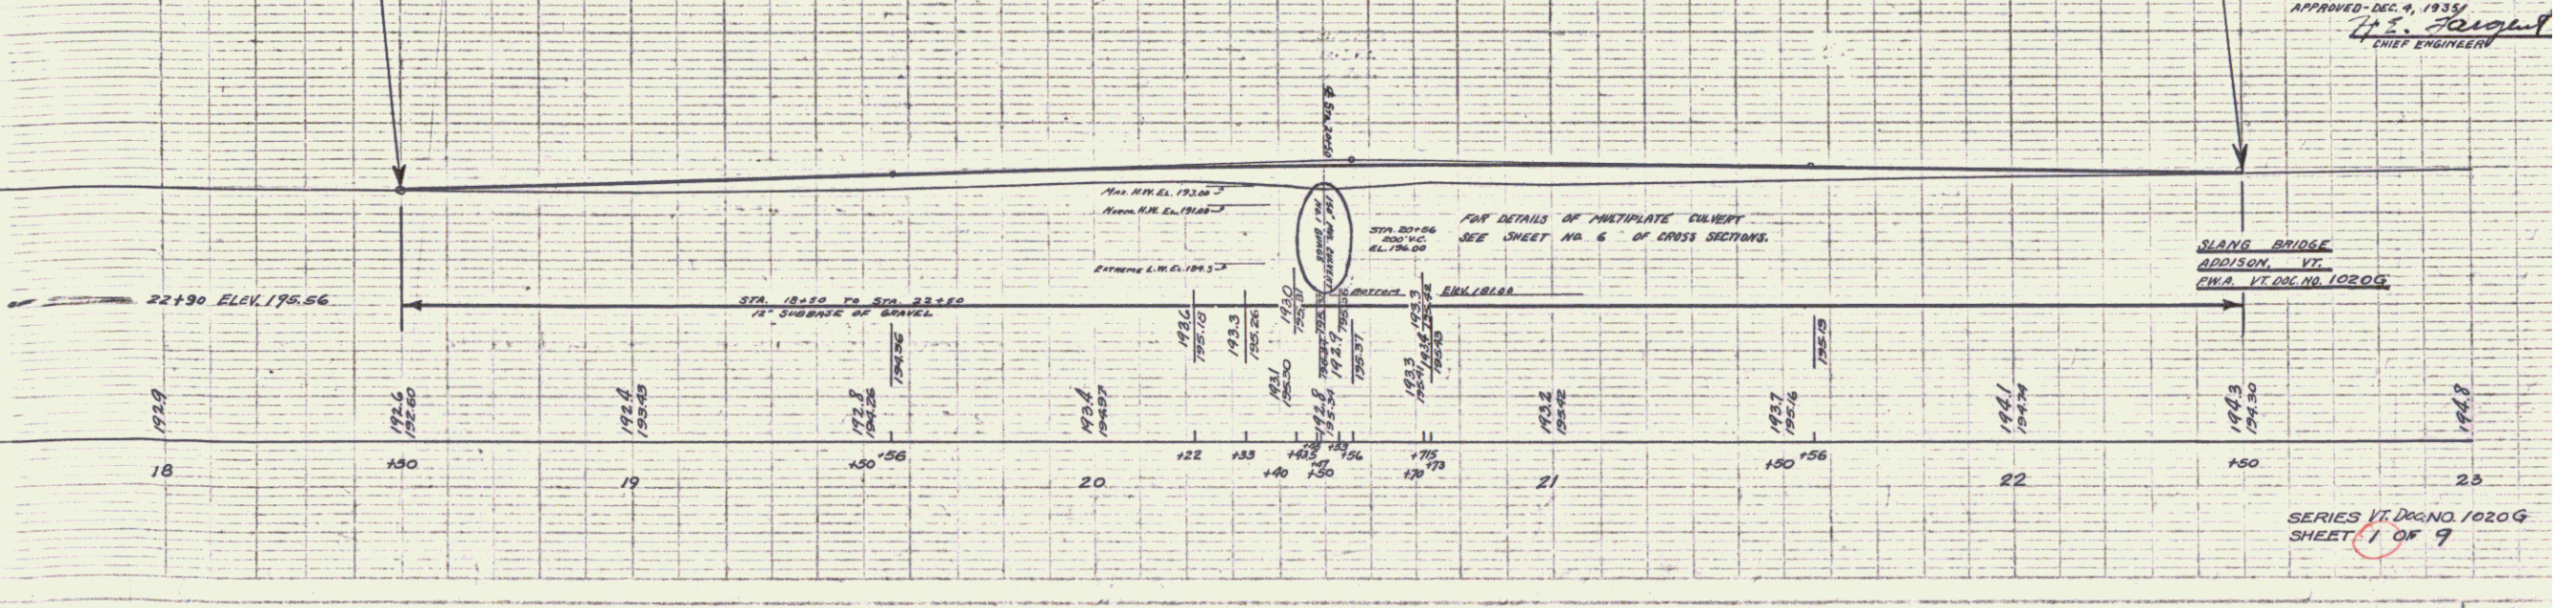 APPROVED-DEC. 4, 1935
H.E. Sargent
CHIEF ENGINEER
₵ STA. 20+50
MAX. H.W. EL. 193.00
NORM. H.W. EL. 191.00
EXTREME L.W. EL. 184.5
STA. 20+56
200' V.C.
EL. 196.00
FOR DETAILS OF MULTIPLATE CULVERT
SEE SHEET NO. 6 OF CROSS SECTIONS.
SLANG BRIDGE
ADDISON, VT.
P.W.A. VT. DOC. NO. 1020G
22+90 ELEV. 195.56
STA. 18+50 TO STA. 22+50
12" SUBBASE OF GRAVEL
BOTTOM ELEV. 181.00
192.9
192.6
192.60
192.4
193.43
192.8
194.26
194.36
193.4
194.97
193.6
195.18
193.3
195.26
193.1
195.30
193.0
195.31
192.8
195.34
192.9
195.37
193.3
195.41
193.3
195.42
195.43
193.2
195.42
193.7
195.16
195.13
194.1
194.74
194.3
194.30
194.8
18
+50
19
+50
+56
20
+22
+33
+40
+43.5
+47
+50
+53
+56
+70
+71.5
+73
21
+50
+56
22
+50
23
SERIES VT. DOC. NO. 1020G
SHEET 1 OF 9